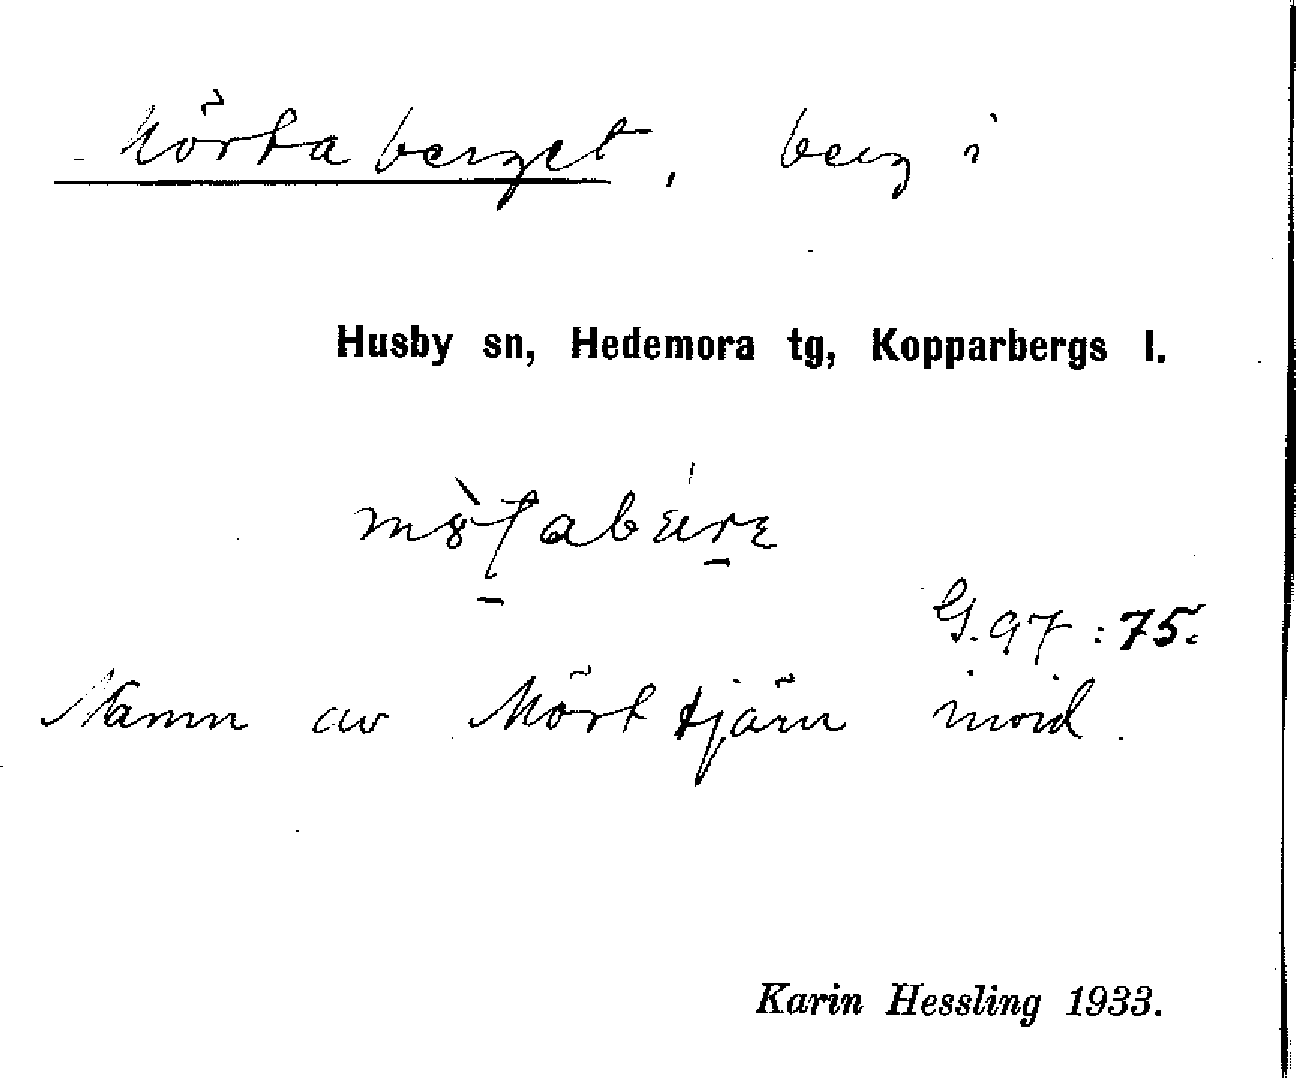 Mörtaberget, berg i
Husby sn, Hedemora tg, Kopparbergs l.
G. 97 : 75.
Namn av Mörttjärn invid.
Karin Hessling 1933.